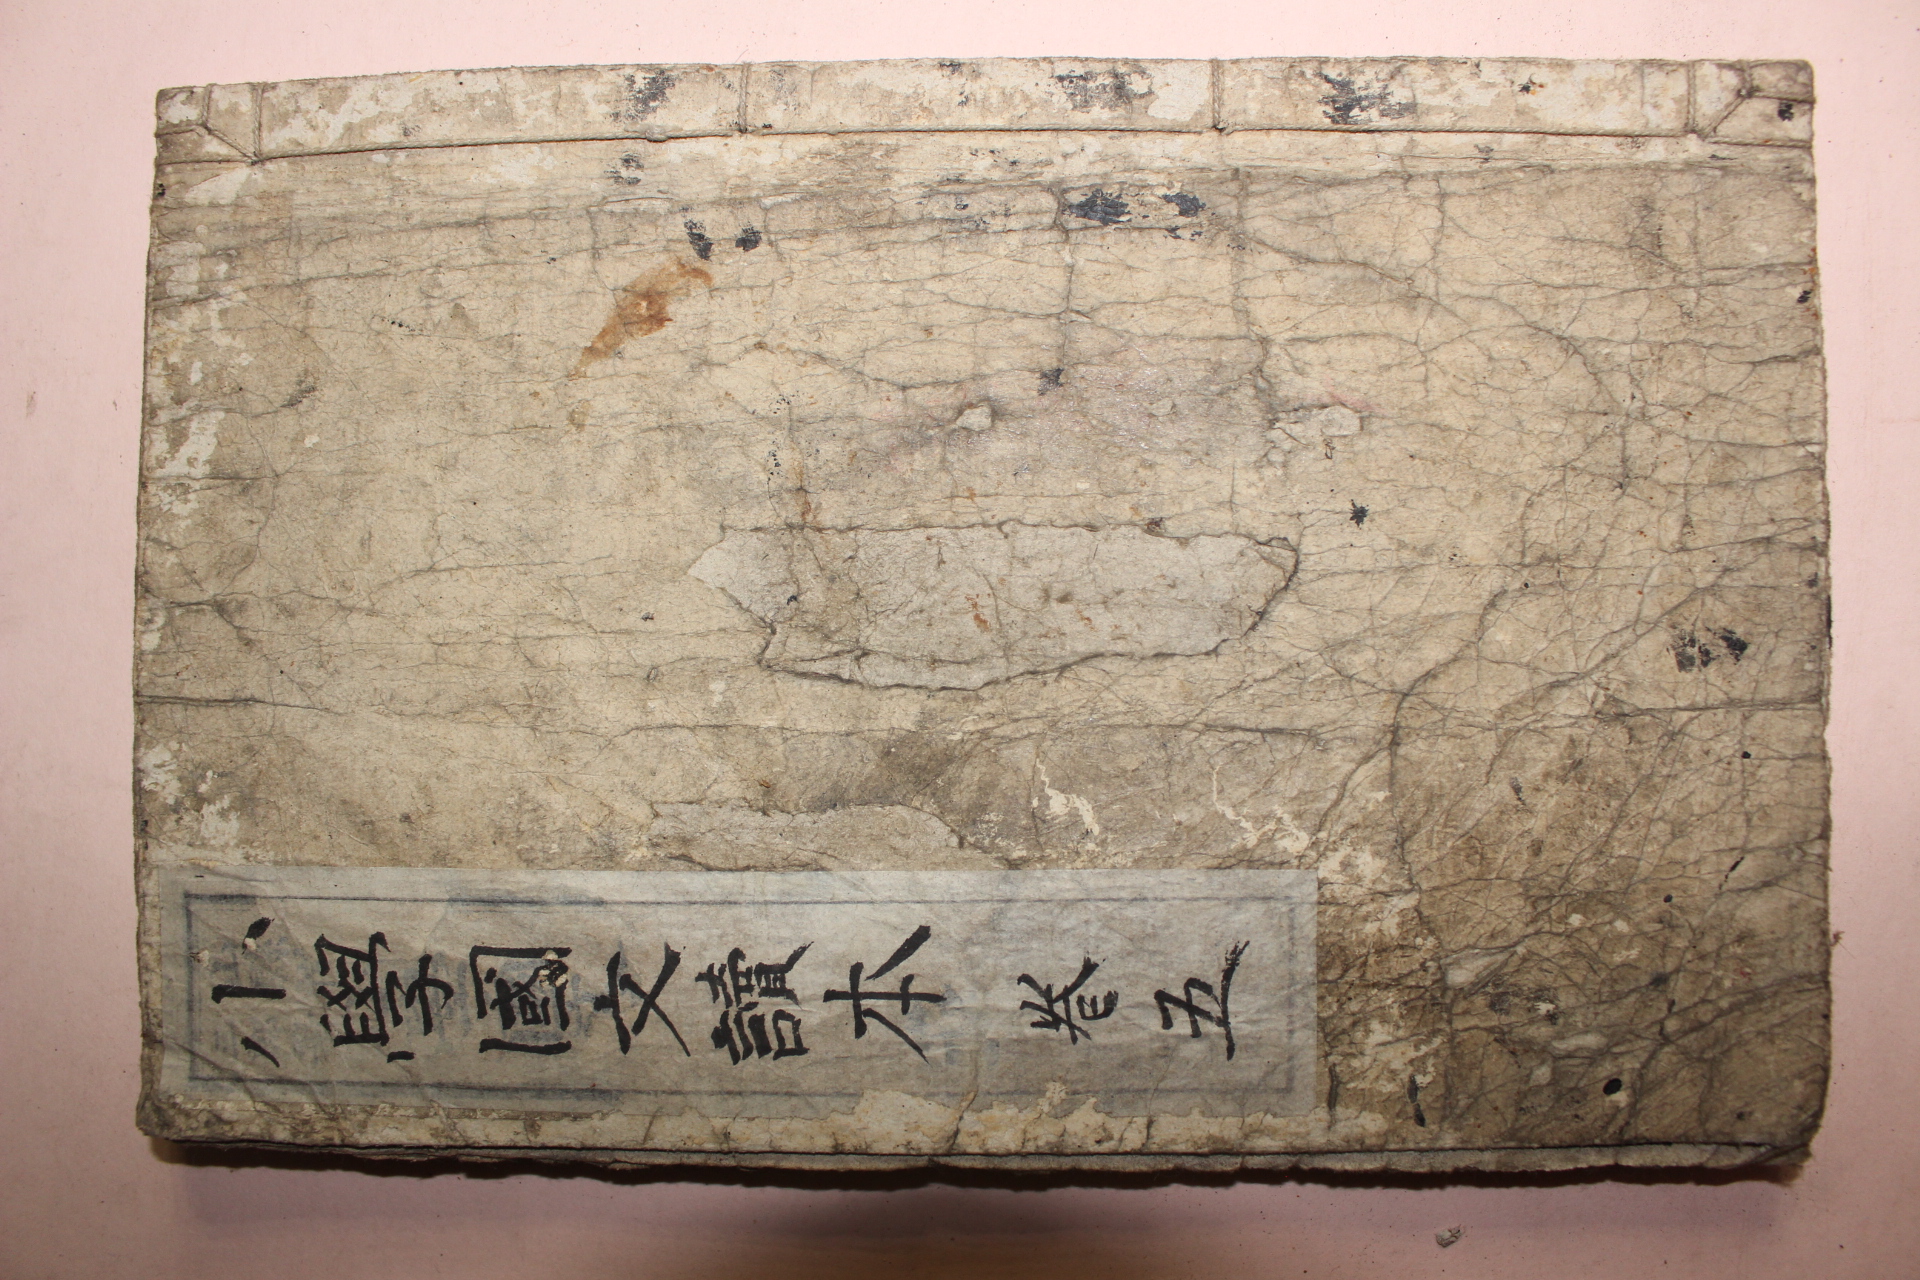 小學國文讀本 卷五